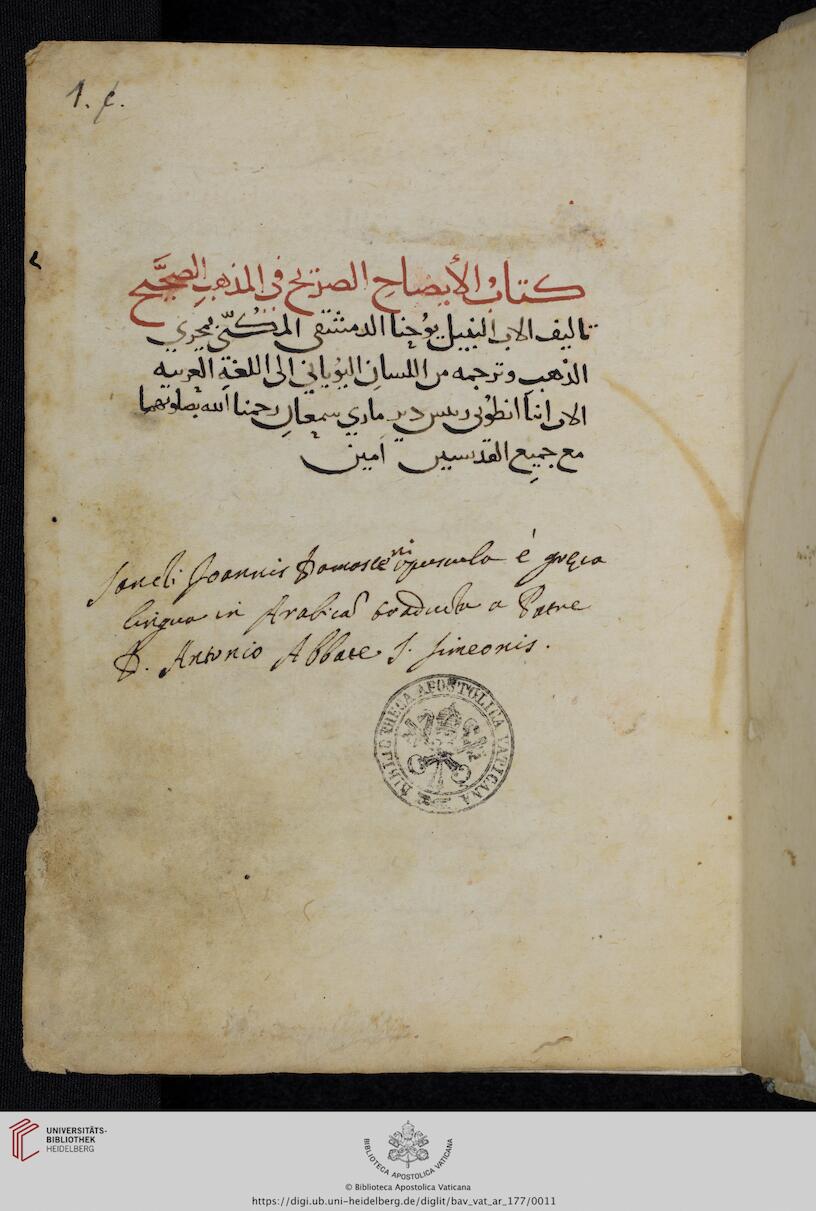 1. c.
كتابُ الأيضاحِ الصريح فى المذهبِ الصحيَّح
تاليف الاب النبيل يوُحنا الدمشقى المكنّى بمجري
الذهبِ وترجمه من اللسانِ اليوُناني الى اللغةِ العربيه
الاب انبا انطوُنى رييس دير ماري سمعان رحمنا الله بصلوتهما
مع جميعِ القديسين امين
Sancti Joannis Damasceni opuscula è gręca
lingua in Arabicā traducta a Patre
D. Antonio Abbate S. Simeonis.
BIBLIOTHECA APOSTOLICA VATICANA
UNIVERSITÄTS-
BIBLIOTHEK
HEIDELBERG
BIBLIOTECA APOSTOLICA VATICANA
© Biblioteca Apostolica Vaticana
https://digi.ub.uni-heidelberg.de/diglit/bav_vat_ar_177/0011